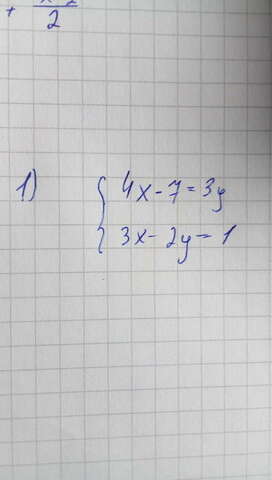 +
2
1)
4x-7=3y
3x-2y=1